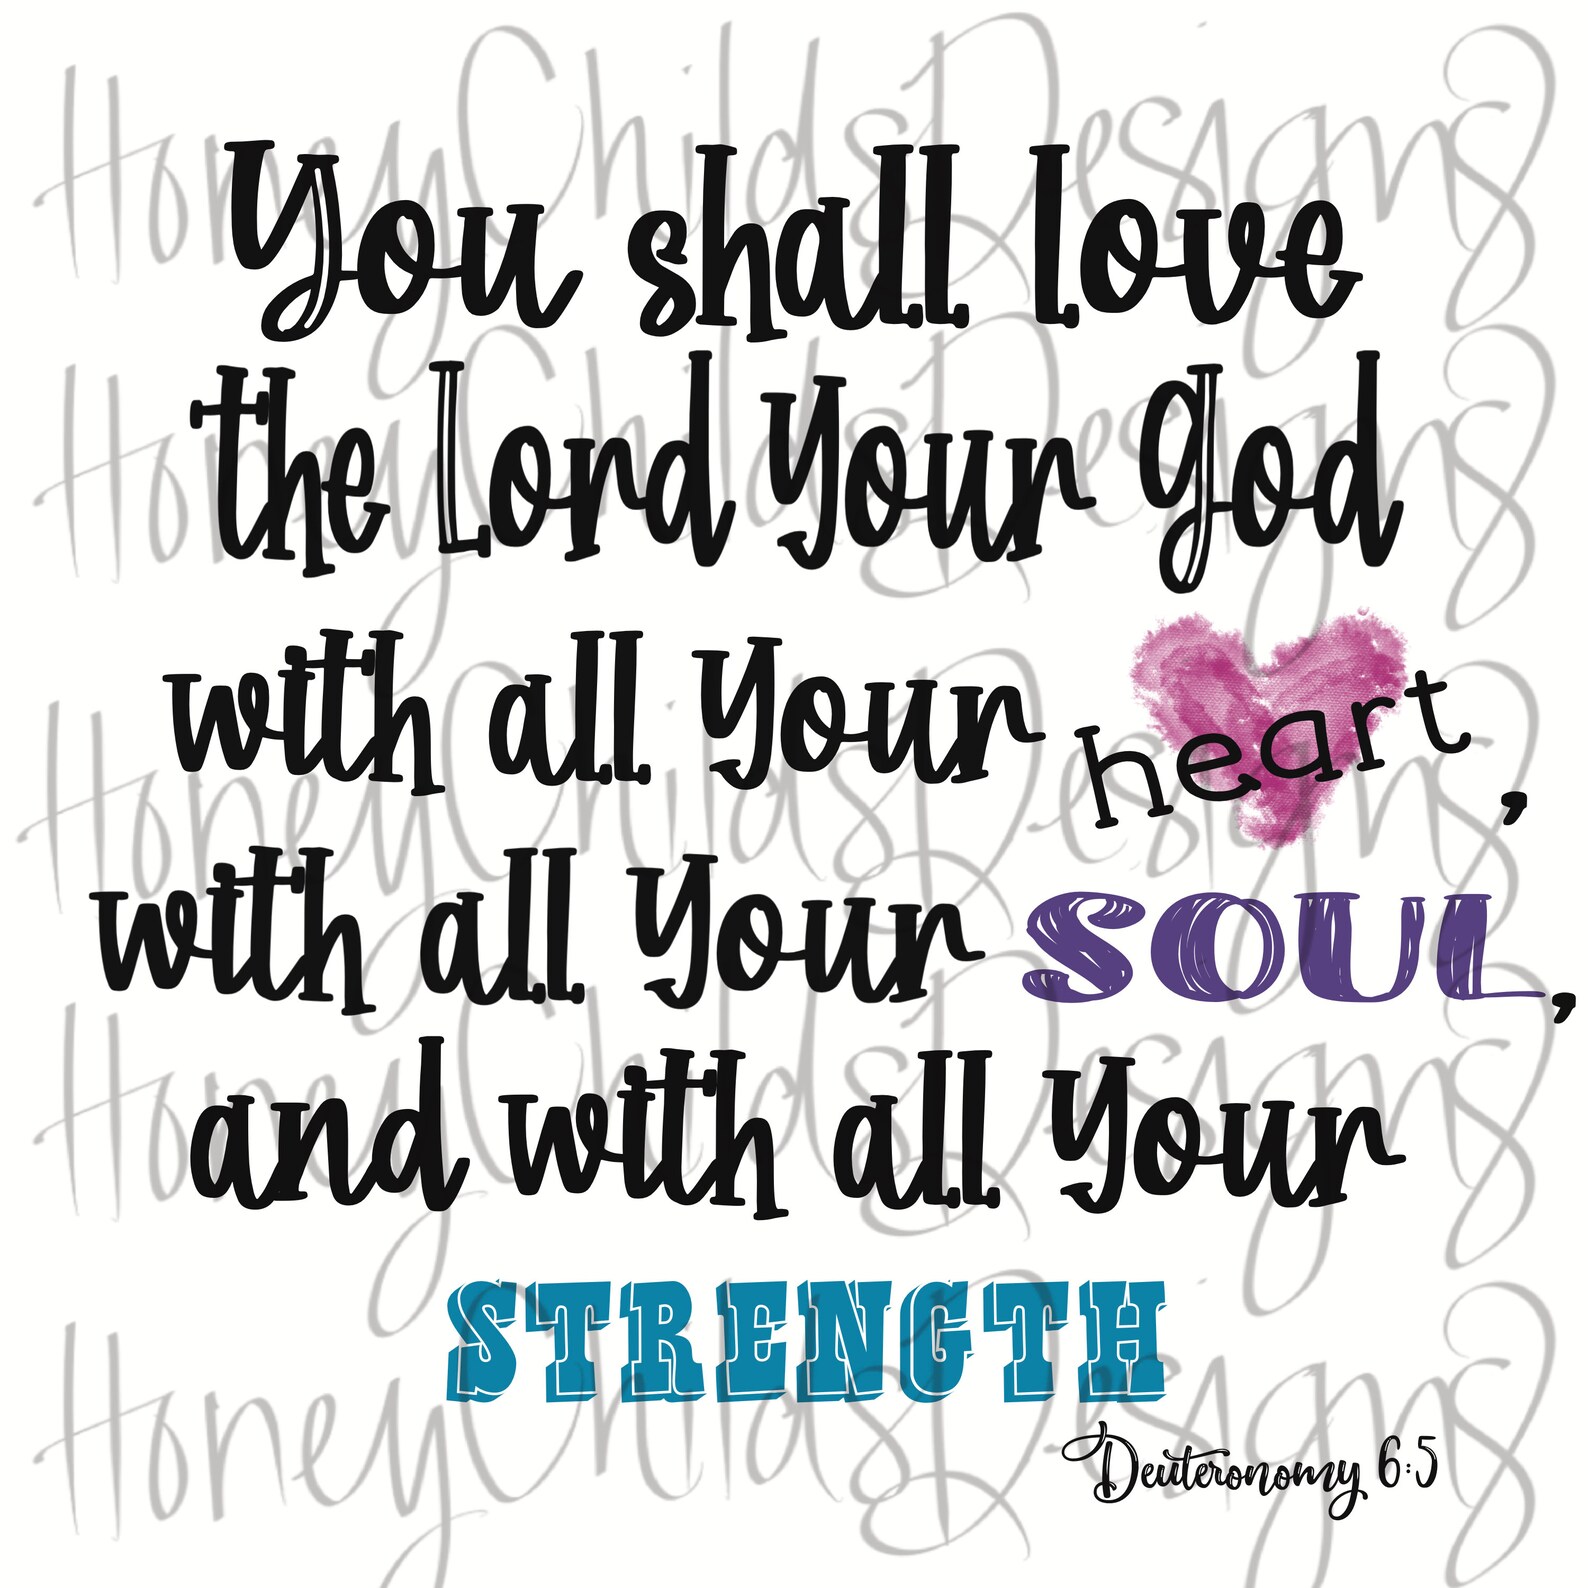 HoneyChildsDesigns
You shall love
the Lord Your God
HoneyChildsDesigns
with all Your heart,
HoneyChildsDesigns
with all Your SOUL,
and with all Your
HoneyChildsDesigns
STRENGTH
HoneyChildsDesigns
Deuteronomy 6:5